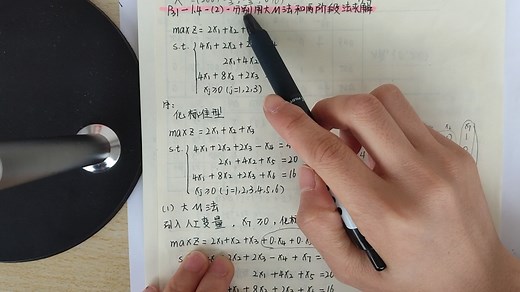 P31-1.4-(2)-分别用大M法和两阶段法求解
max Z = 2x₁+x₂+
s.t. { 4x₁+2x₂+
2x₁+4x₂
4x₁+8x₂+2x₃
xⱼ≥0 (j=1,2,3)
解:
化标准型
max Z = 2x₁+x₂+x₃
s.t. { 4x₁+2x₂+2x₃-x₄=4
2x₁+4x₂+x₅=20
4x₁+8x₂+2x₃+x₆=16
xⱼ≥0 (j=1,2,3,4,5,6)
(1) 大M法
引入人工变量, x₇≥0, 化标
max Z = 2x₁+x₂+x₃+0·x₄+0·x
4x₁+2x₂+2x₃-x₄+x₇=
2x₁+4x₂+x₅=20
4x₁+8x₂+2x₃+x₆=16